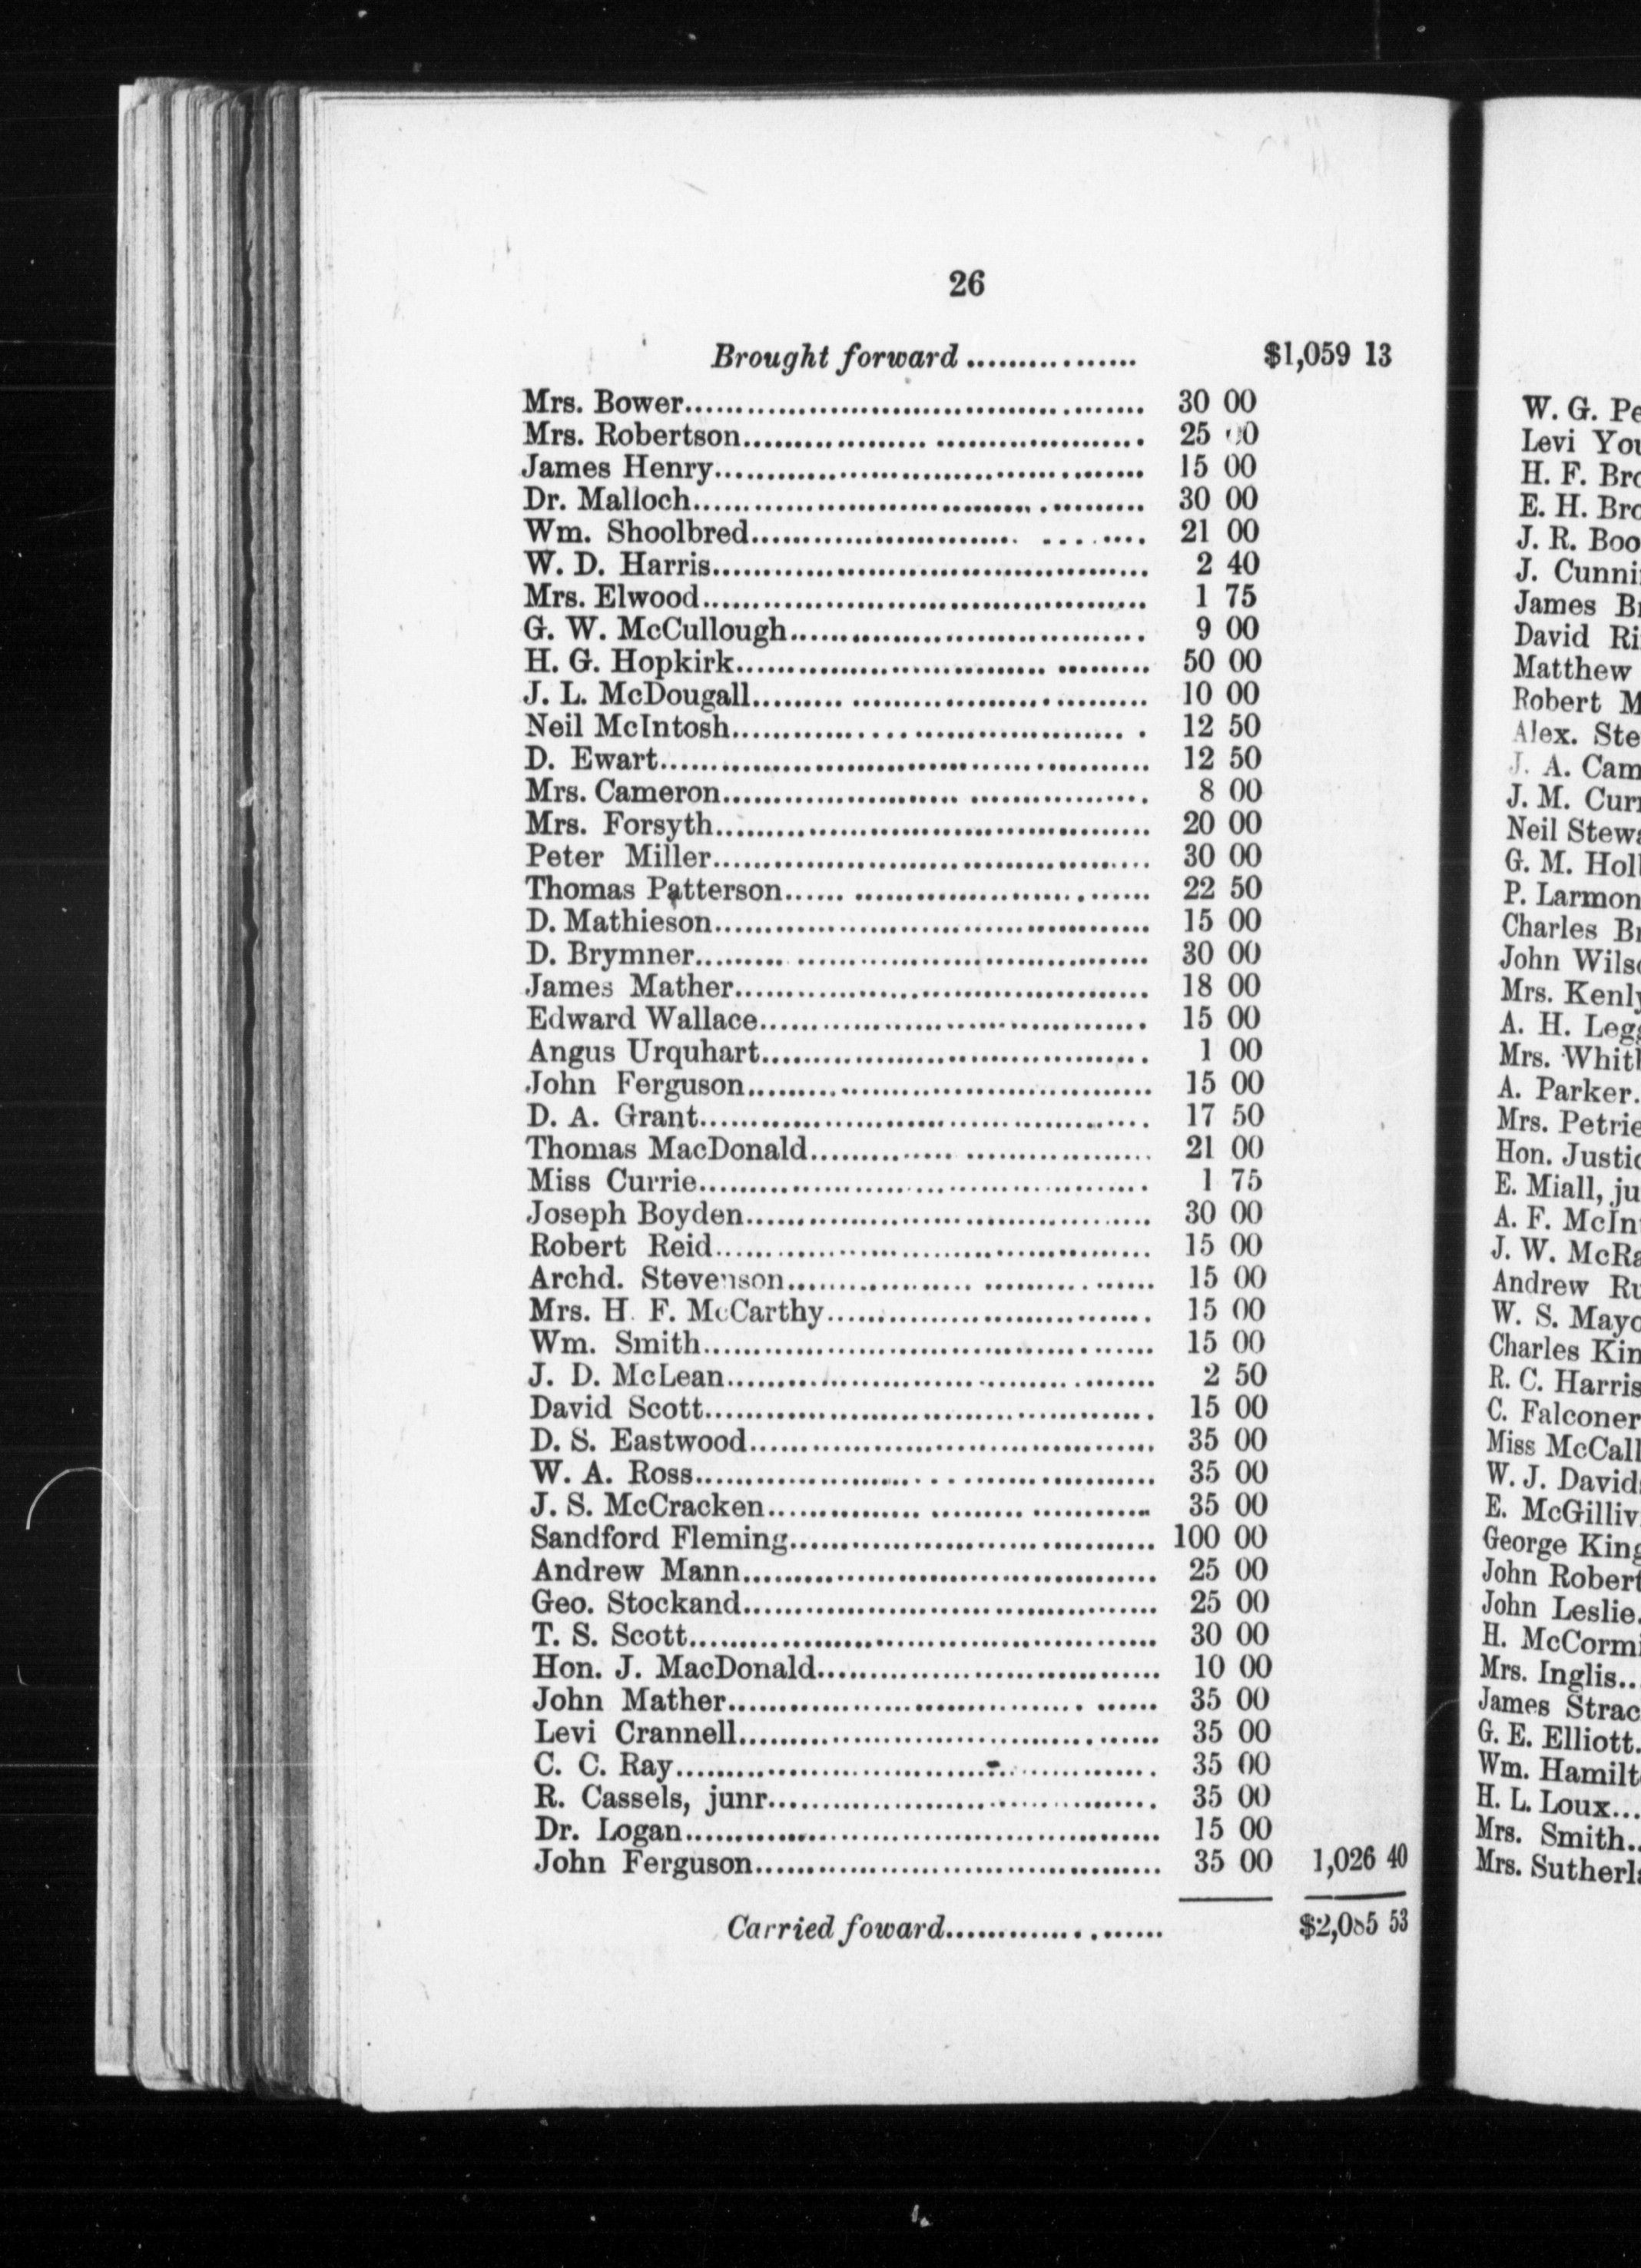 26
Brought forward ................ $1,059 13
Mrs. Bower........ 30 00
Mrs. Robertson........ 25 00
James Henry........ 15 00
Dr. Malloch........ 30 00
Wm. Shoolbred........ 21 00
W. D. Harris........ 2 40
Mrs. Elwood........ 1 75
G. W. McCullough........ 9 00
H. G. Hopkirk........ 50 00
J. L. McDougall........ 10 00
Neil McIntosh........ 12 50
D. Ewart........ 12 50
Mrs. Cameron........ 8 00
Mrs. Forsyth........ 20 00
Peter Miller........ 30 00
Thomas Patterson........ 22 50
D. Mathieson........ 15 00
D. Brymner........ 30 00
James Mather........ 18 00
Edward Wallace........ 15 00
Angus Urquhart........ 1 00
John Ferguson........ 15 00
D. A. Grant........ 17 50
Thomas MacDonald........ 21 00
Miss Currie........ 1 75
Joseph Boyden........ 30 00
Robert Reid........ 15 00
Archd. Stevenson........ 15 00
Mrs. H. F. McCarthy........ 15 00
Wm. Smith........ 15 00
J. D. McLean........ 2 50
David Scott........ 15 00
D. S. Eastwood........ 35 00
W. A. Ross........ 35 00
J. S. McCracken........ 35 00
Sandford Fleming........ 100 00
Andrew Mann........ 25 00
Geo. Stockand........ 25 00
T. S. Scott........ 30 00
Hon. J. MacDonald........ 10 00
John Mather........ 35 00
Levi Crannell........ 35 00
C. C. Ray........ 35 00
R. Cassels, junr........ 35 00
Dr. Logan........ 15 00
John Ferguson........ 35 00 1,026 40
Carried foward........ $2,085 53
W. G.
Levi
H. F.
E. H.
J. R.
J.
James
David
Matthew
Robert
Alex.
J. A.
J. M.
Neil
G. M.
P. Larmon
Charles
John
Mrs.
A. H.
Mrs.
A. Parker.
Mrs. Petrie
Hon.
E. Miall,
A. F.
J. W.
Andrew
W. S.
Charles
R. C. Harris
C. Falconer
Miss
W. J.
E.
George
John
John Leslie.
H.
Mrs. Inglis..
James
G. E. Elliott.
Wm.
H. L. Loux...
Mrs. Smith..
Mrs.